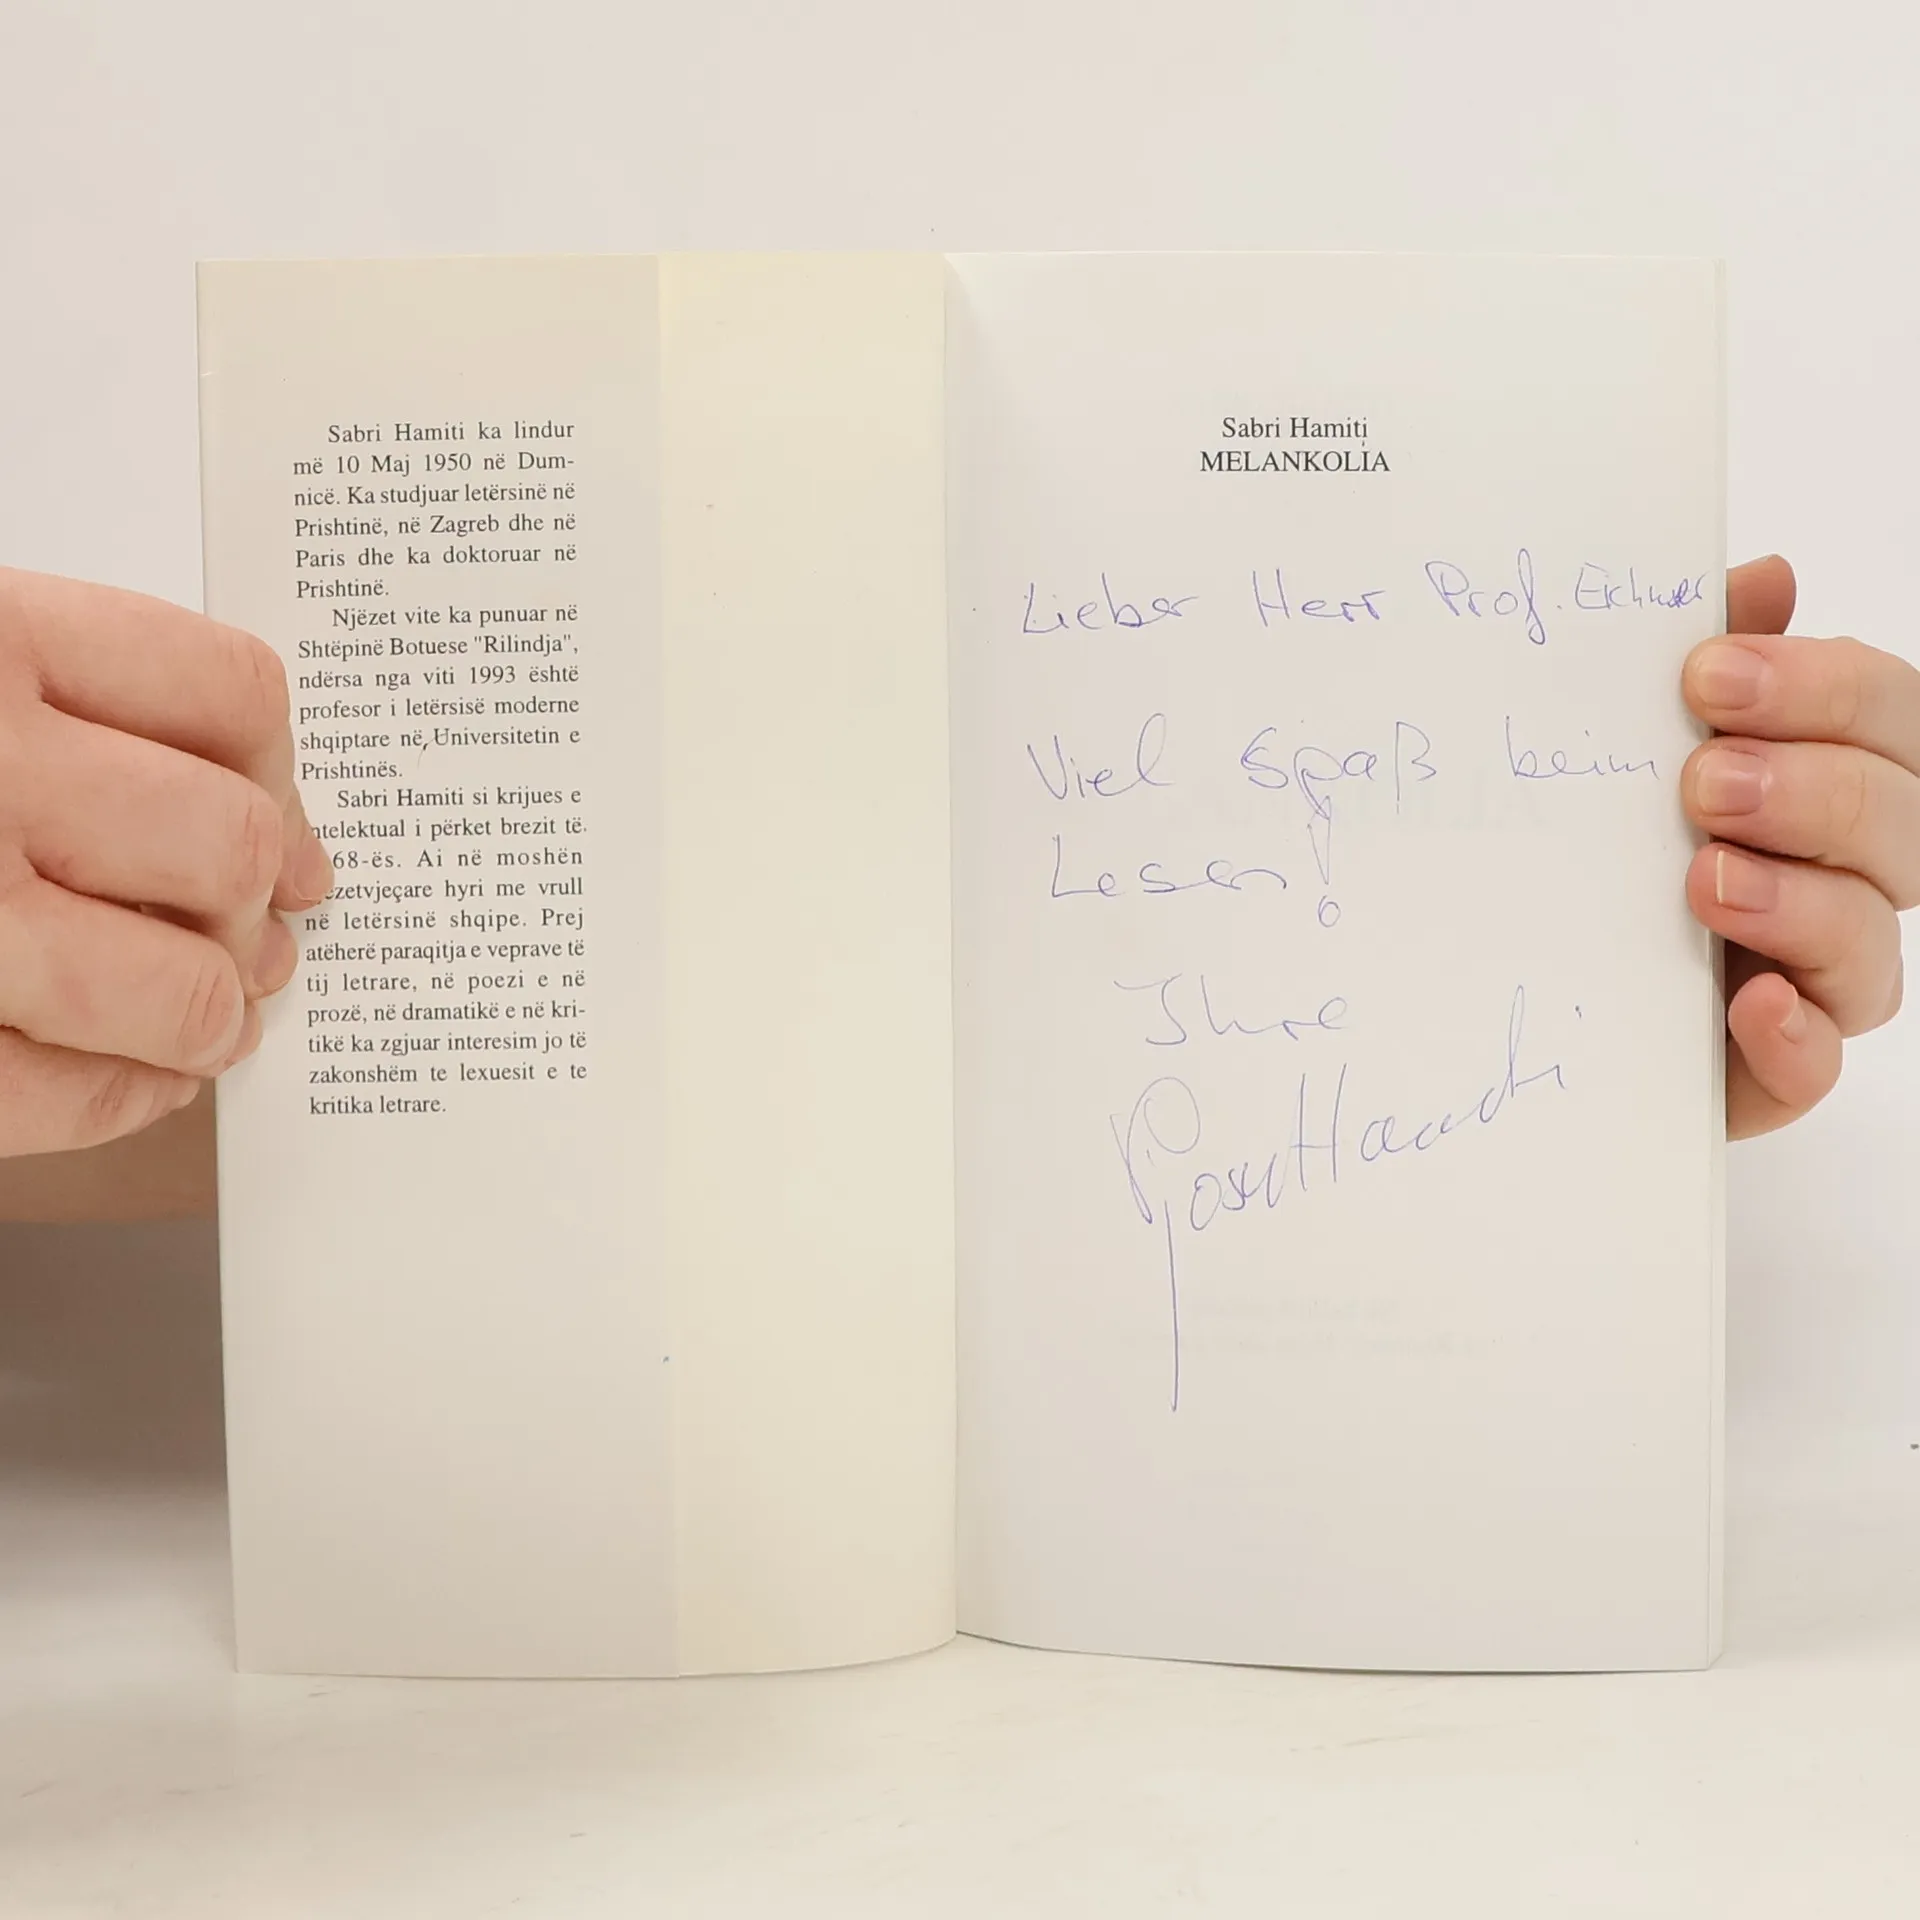 Sabri Hamiti ka lindur
më 10 Maj 1950 në Dum-
nicë. Ka studjuar letërsinë në
Prishtinë, në Zagreb dhe në
Paris dhe ka doktoruar në
Prishtinë.
Njëzet vite ka punuar në
Shtëpinë Botuese "Rilindja",
ndërsa nga viti 1993 është
profesor i letërsisë moderne
shqiptare në Universitetin e
Prishtinës.
Sabri Hamiti si krijues e
ntelektual i përket brezit të
68-ës. Ai në moshën
ezetvjeçare hyri me vrull
në letërsinë shqipe. Prej
atëherë paraqitja e veprave të
tij letrare, në poezi e në
prozë, në dramatikë e në kri-
tikë ka zgjuar interesim jo të
zakonshëm te lexuesit e te
kritika letrare.
Sabri Hamiti
MELANKOLIA
Lieber Herr Prof.
Viel Spaß beim
Lesen!
Ihre